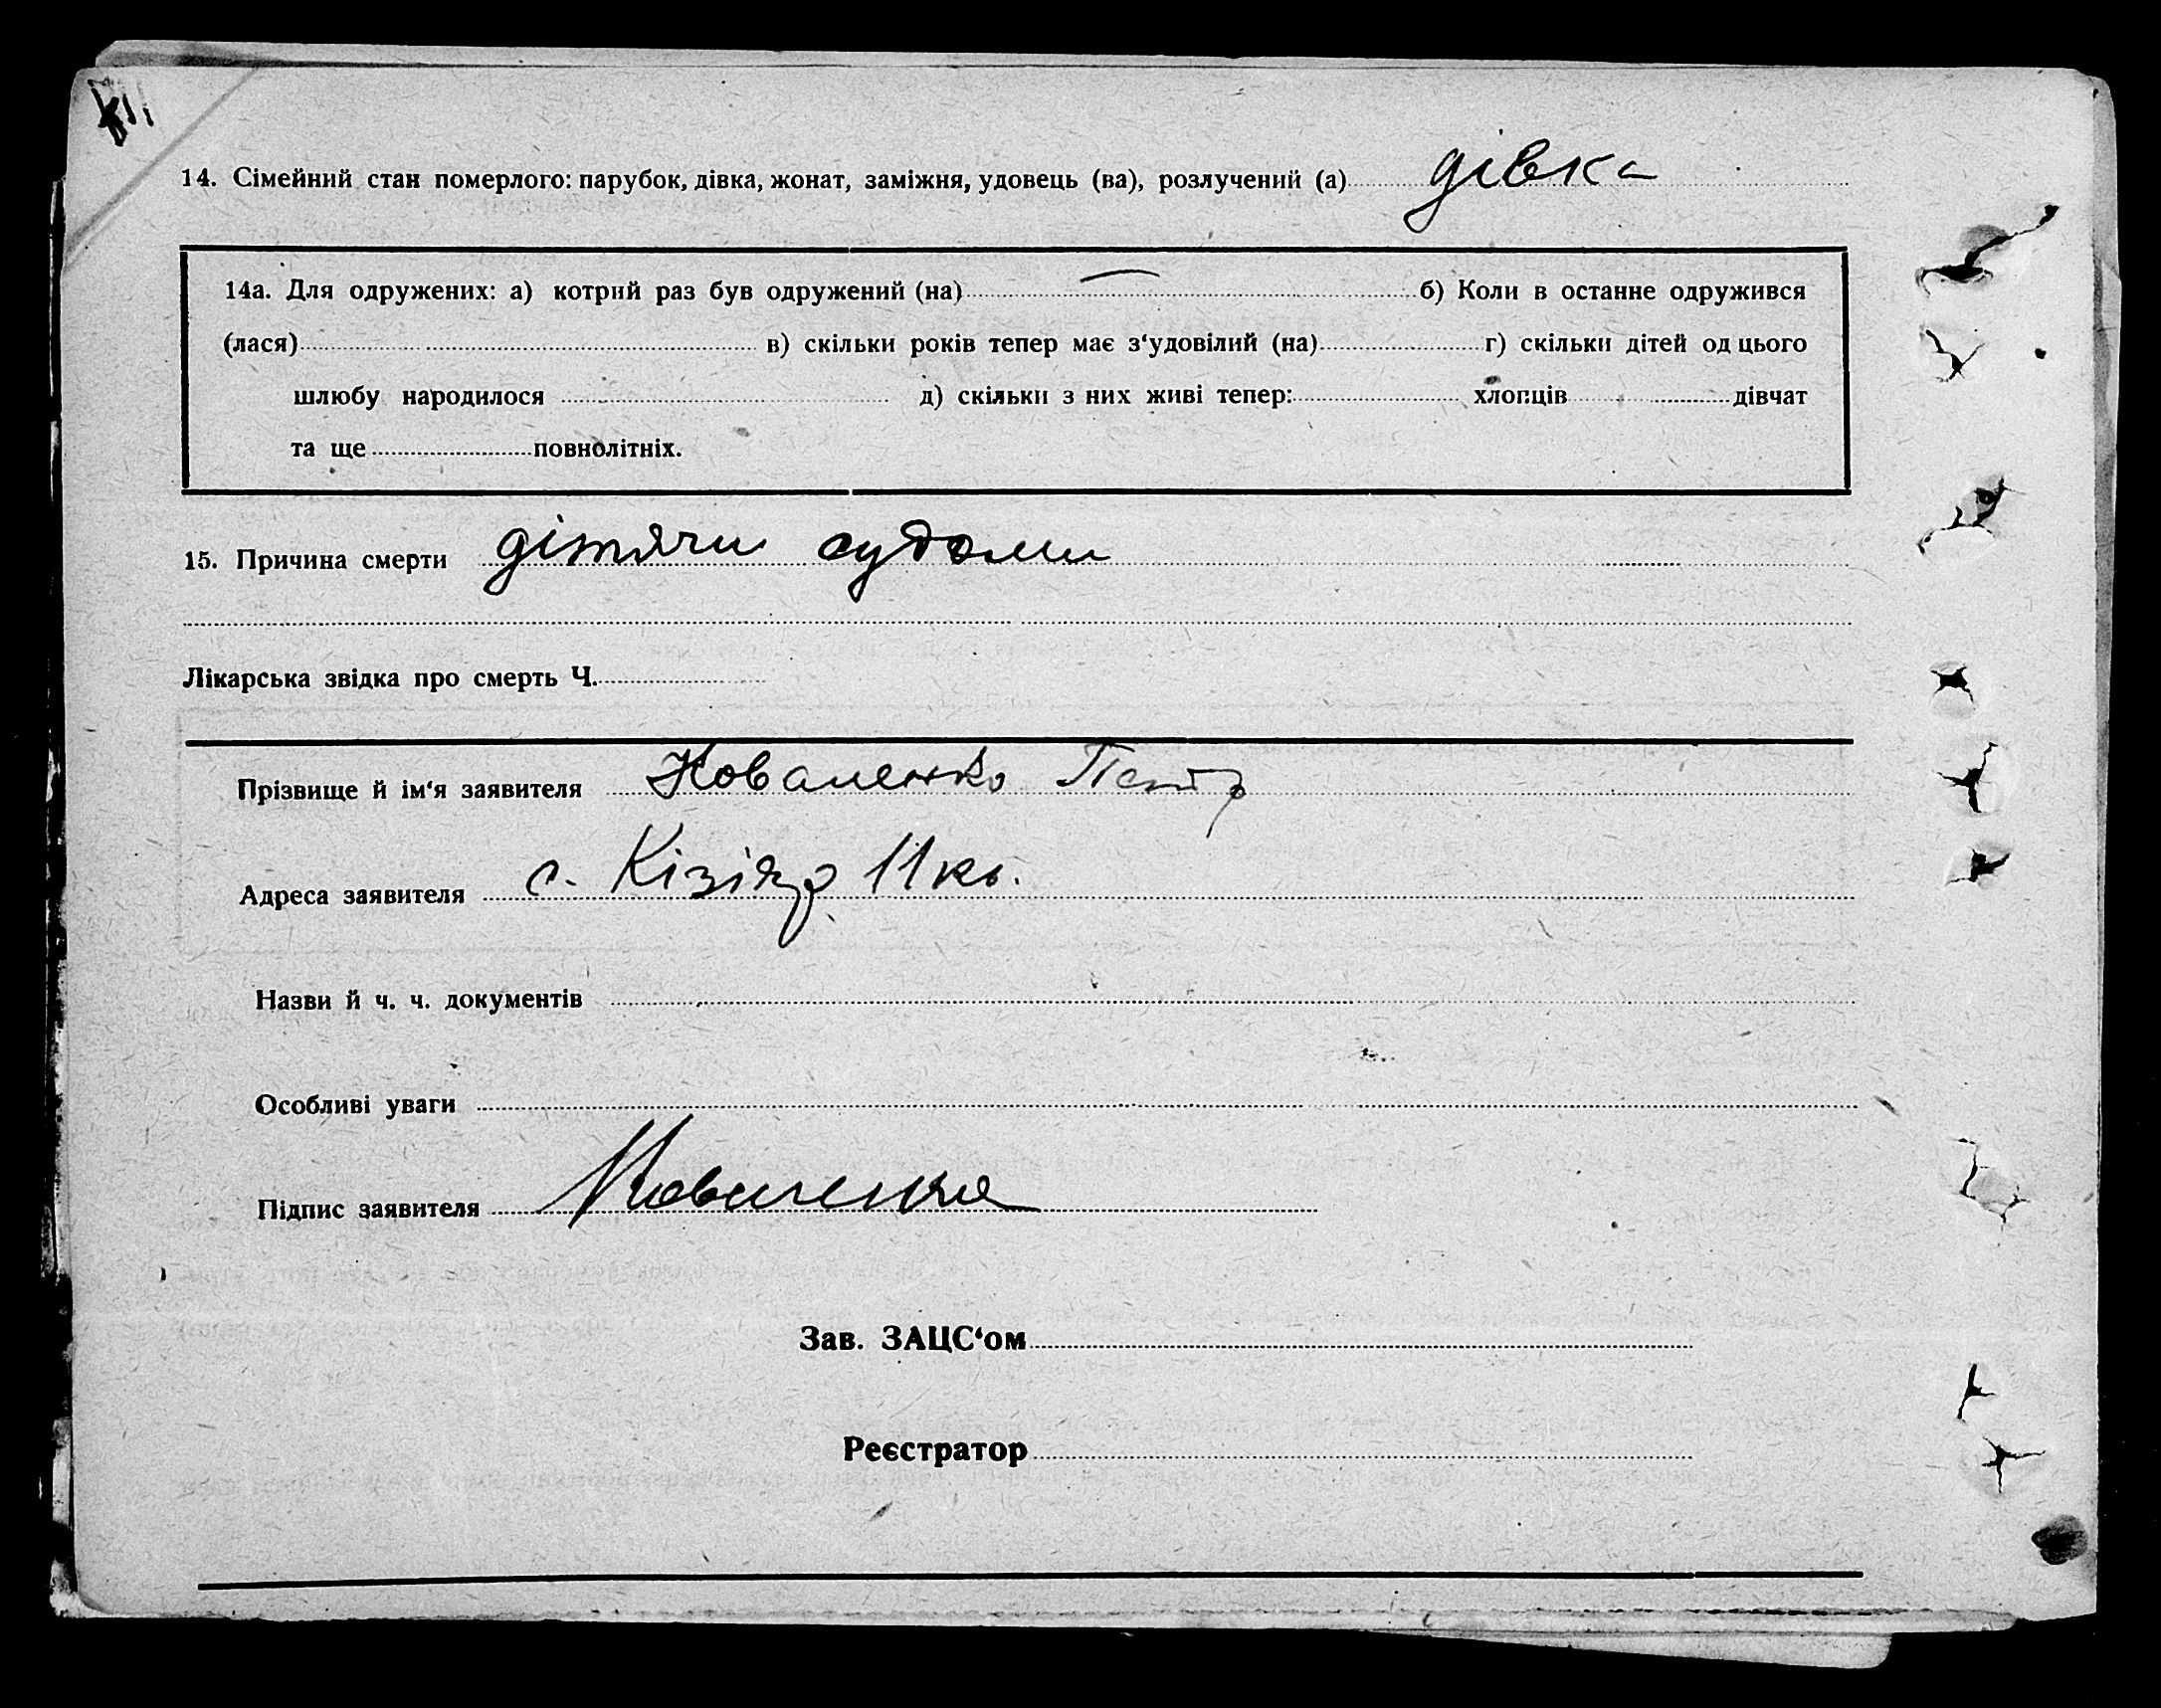 14. Сімейний стан померлого: парубок, дівка, жонат, заміжня, удовець (ва), розлучений (а) дівка
14а. Для одружених: а) котрий раз був одружений (на) — б) Коли в останне одружився
(лася) в) скільки років тепер має з‘удовілий (на) г) скільки дітей од цього
шлюбу народилося д) скільки з них живі тепер: хлопців дівчат
та ще повнолітніх.
15. Причина смерти дітячи судоми
Лікарська звідка про смерть Ч.
Прізвище й ім‘я заявителя Коваленко Петр
Адреса заявителя с. Кізіяр 11 кв.
Назви й ч. ч. документів
Особливі уваги
Підпис заявителя Коваленко
Зав. ЗАЦС‘ом
Реєстратор